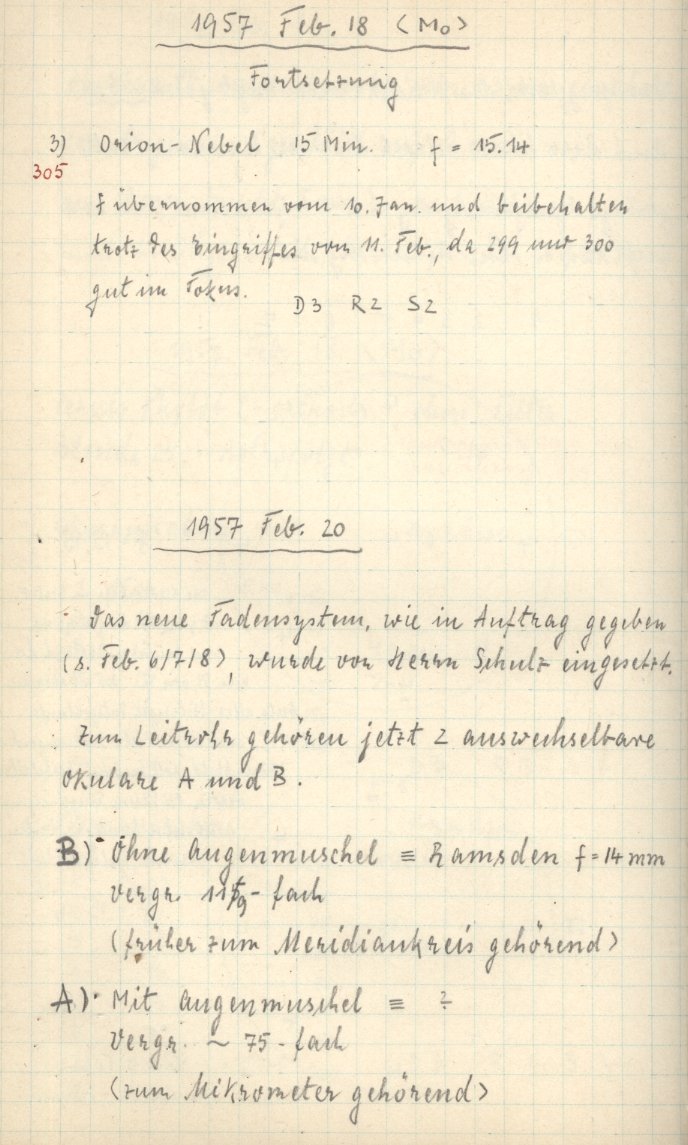 1957 Feb. 18 (Mo)
Fortsetzung
3) Orion-Nebel 15 Min. f = 15.14
305
f übernommen vom 10. Jan. und beibehalten
trotz des Eingriffes vom 11. Feb., da 299 und 300
gut im Fokus. D3 R2 S2
1957 Feb. 20
Das neue Fadensystem, wie in Auftrag gegeben
(s. Feb. 6/7/8), wurde von Herrn Schulz eingesetzt.
Zum Leitrohr gehören jetzt 2 auswechselbare
Okulare A und B.
B) Ohne Augenmuschel ≡ Ramsden f = 14 mm
Vergr. -fach
(früher zum Meridiankreis gehörend)
A) Mit Augenmuschel ≡ ?
Vergr. ~ 75-fach
(zum Mikrometer gehörend)